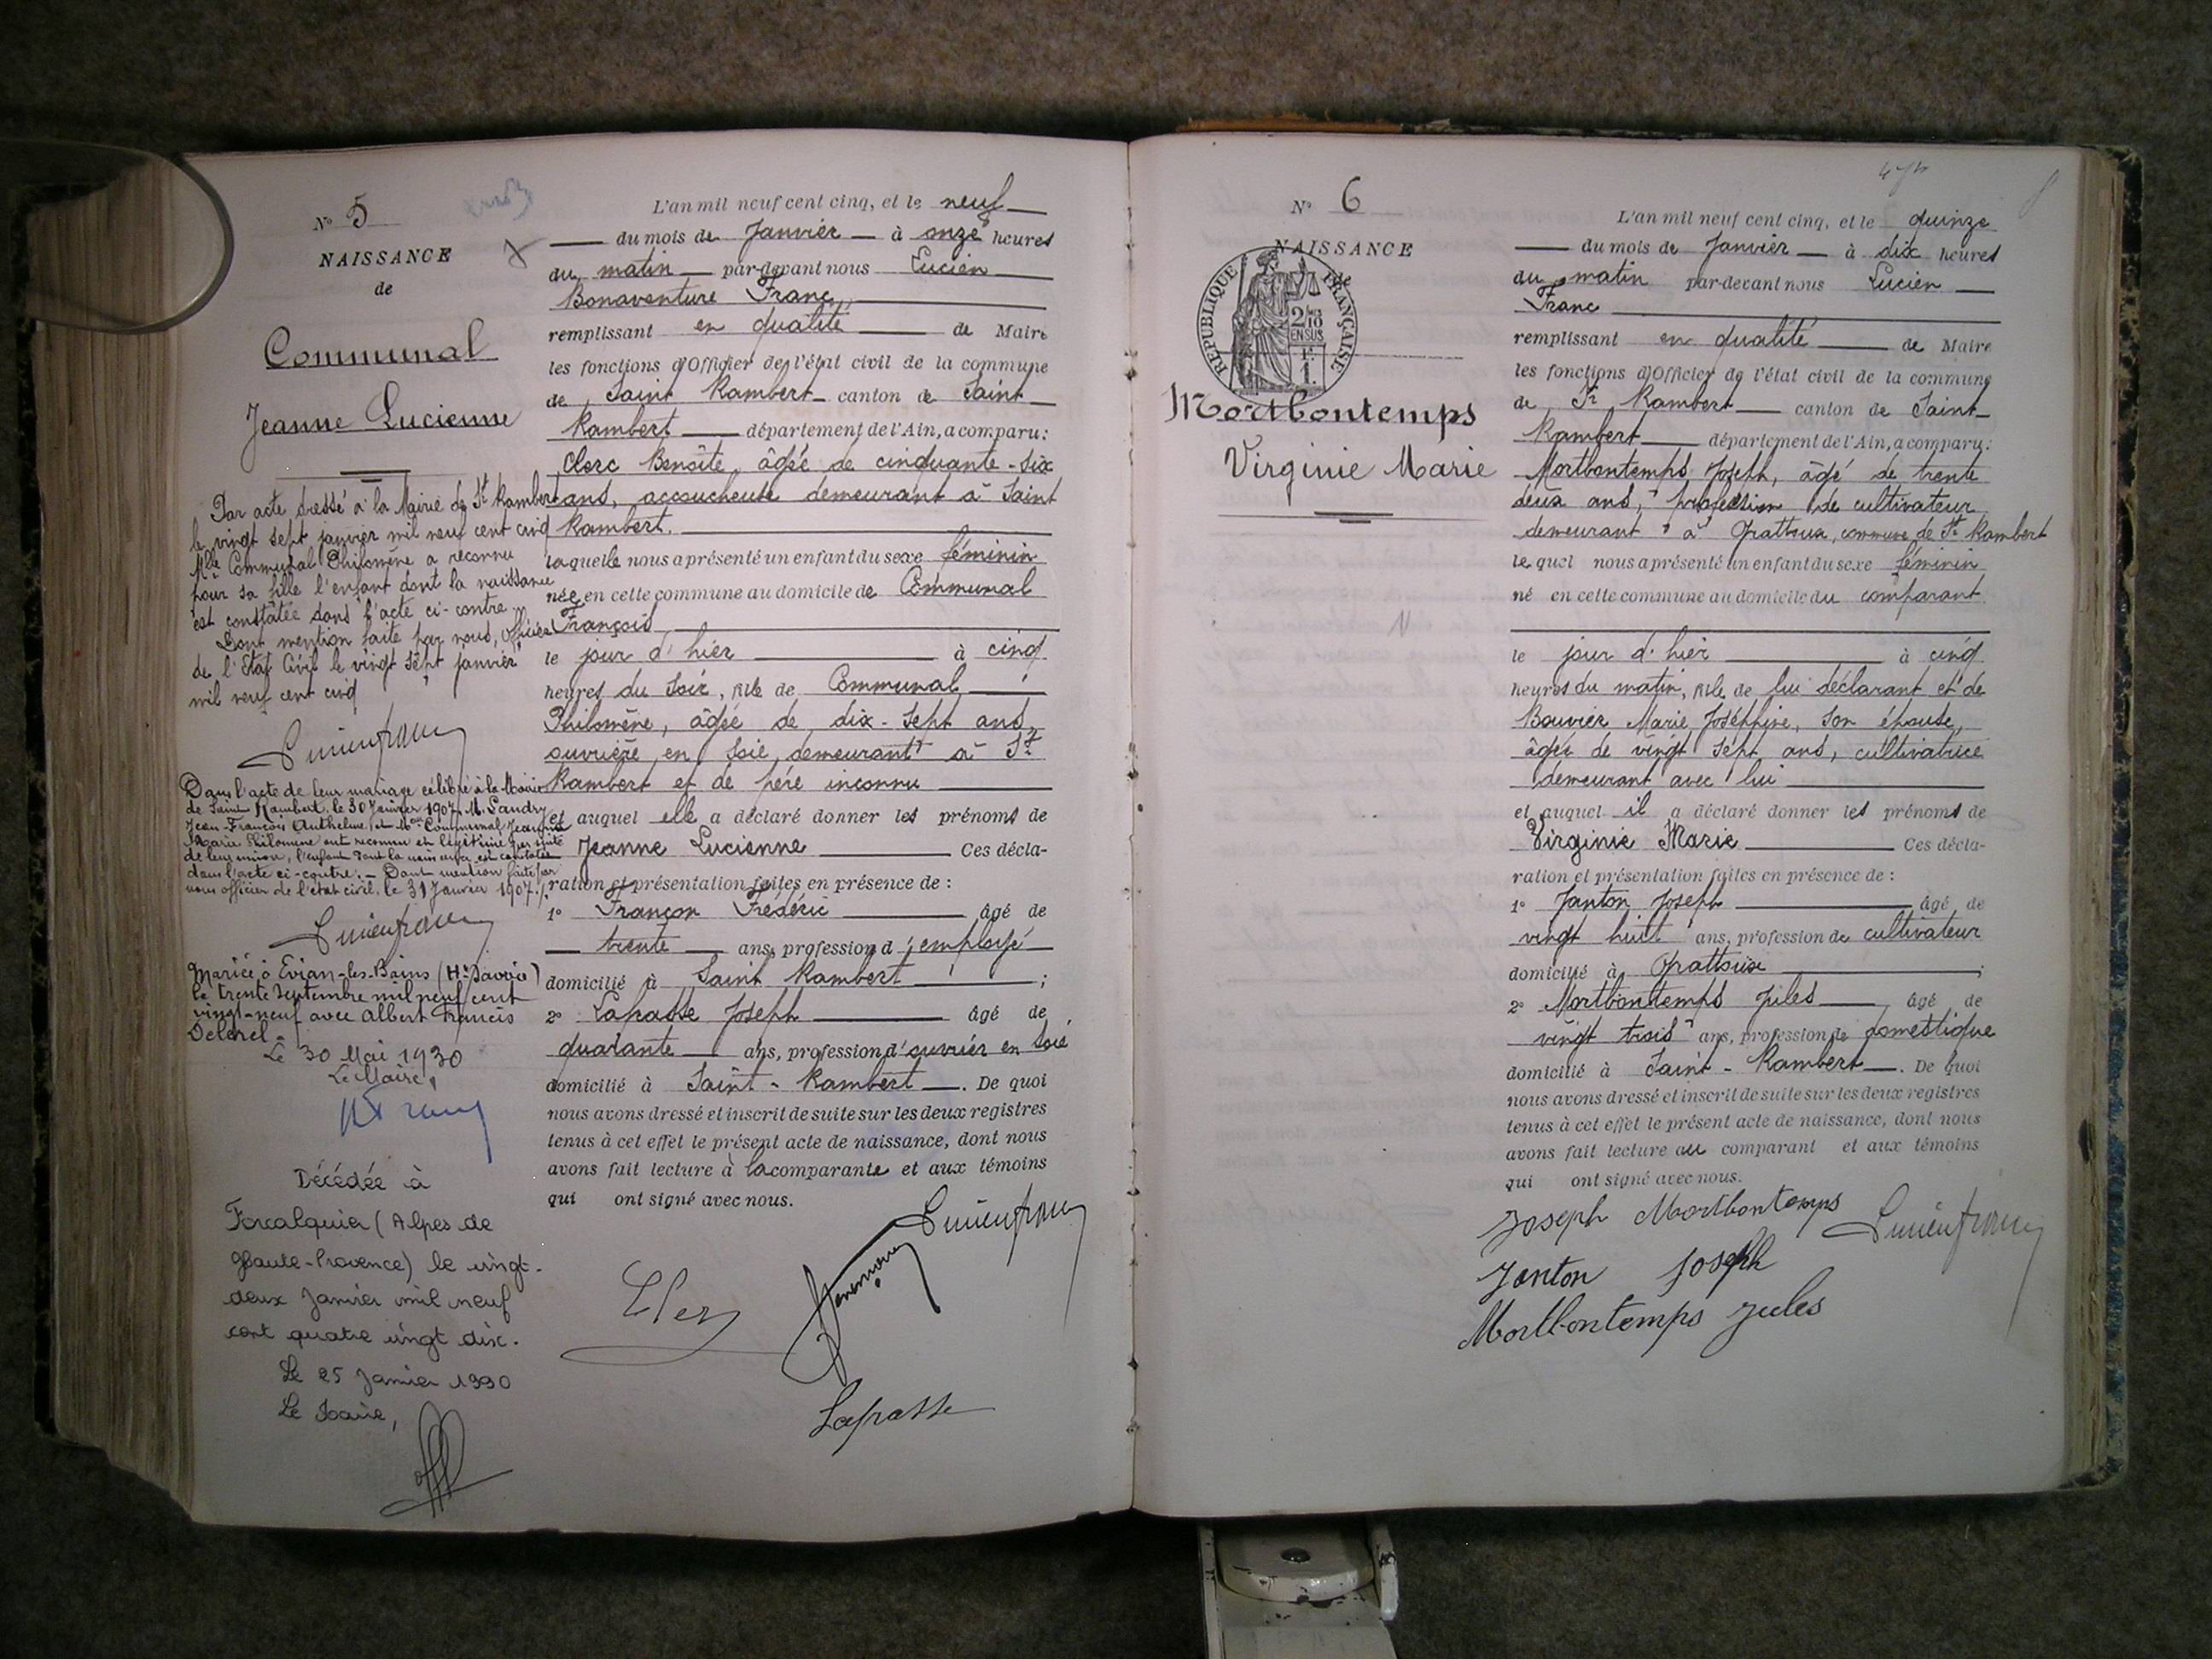 N° 5
NAISSANCE
de
Communal
Jeanne Lucienne
Par acte dressé à la Mairie de St Rambert
le vingt sept janvier mil neuf cent cinq
Mlle Communal Philomène a reconnu
pour sa fille l'enfant dont la naissance
est constatée dans l'acte ci-contre
Dont mention faite par nous, officier
de l'Etat Civil le vingt sept janvier
mil neuf cent cinq
Lucien franc
Dans l'acte de leur mariage célébré à la Mairie
de Saint Rambert, le 30 Janvier 1907, M. Landry
Jean-François Anthelme et Mlle Communal Jeanne
Marie Philomène ont reconnu et légitimé par suite
de leur union, l'enfant dont la naissance est constatée
dans l'acte ci-contre. - Dont mention faite par
nous officier de l'état civil, le 31 Janvier 1907.
Lucien franc
Mariée à Evian-les-Bains (Hte Savoie)
le trente Septembre mil neuf cent
vingt-neuf avec Albert Francis
Le 30 Mai 1930
Le Maire,
Décédée à
Forcalquier (Alpes de
Haute-Provence) le vingt-
deux Janvier mil neuf
cent quatre vingt dix.
Le 25 Janvier 1990
Le Maire,
L'an mil neuf cent cinq, et le neuf
du mois de Janvier à onze heures
du matin par-devant nous Lucien
Bonaventure Franc,
remplissant en qualité de Maire
les fonctions d'Officier de l'état civil de la commune
de Saint Rambert canton de Saint
Rambert département de l'Ain, a comparu :
Clerc Benoîte, âgée de cinquante-six
ans, accoucheuse demeurant à Saint
Rambert.
laquelle nous a présenté un enfant du sexe féminin
née en cette commune au domicile de Communal
François
le jour d'hier à cinq
heures du soir, fille de Communal
Philomène, âgée de dix-sept ans,
ouvrière en soie, demeurant à St
Rambert et de père inconnu
et auquel elle a déclaré donner les prénoms de
Jeanne Lucienne Ces décla-
ration et présentation faites en présence de :
1° Françon Frédéric âgé de
trente ans, profession d'employé
domicilié à Saint Rambert ;
2° Laprasse Joseph âgé de
quarante ans, profession d'ouvrier en soie
domicilié à Saint-Rambert. De quoi
nous avons dressé et inscrit de suite sur les deux registres
tenus à cet effet le présent acte de naissance, dont nous
avons fait lecture à la comparante et aux témoins
qui ont signé avec nous.
Lucien franc
Clerc
Laprasse
N° 6
NAISSANCE
de
REPUBLIQUE FRANÇAISE
2/10
EN SUS
Mortbontemps
Virginie Marie
L'an mil neuf cent cinq, et le quinze
du mois de Janvier à dix heures
du matin par-devant nous Lucien
Franc
remplissant en qualité de Maire
les fonctions d'Officier de l'état civil de la commune
de St Rambert canton de Saint
Rambert département de l'Ain, a comparu :
Mortbontemps Joseph, âgé de trente
deux ans, profession de cultivateur
demeurant à Grattoux, commune de St Rambert
lequel nous a présenté un enfant du sexe féminin
né en cette commune au domicile du comparant
le jour d'hier à cinq
heures du matin, fille de lui déclarant et de
Bouvier Marie Joséphine, son épouse,
âgée de vingt sept ans, cultivatrice
demeurant avec lui
et auquel il a déclaré donner les prénoms de
Virginie Marie Ces décla-
ration et présentation faites en présence de :
1° Janton Joseph âgé de
vingt huit ans, profession de cultivateur
domicilié à Grattoux ;
2° Mortbontemps Jules âgé de
vingt trois ans, profession de domestique
domicilié à Saint-Rambert. De quoi
nous avons dressé et inscrit de suite sur les deux registres
tenus à cet effet le présent acte de naissance, dont nous
avons fait lecture au comparant et aux témoins
qui ont signé avec nous.
Joseph Mortbontemps Lucien franc
Janton Joseph
Mortbontemps Jules